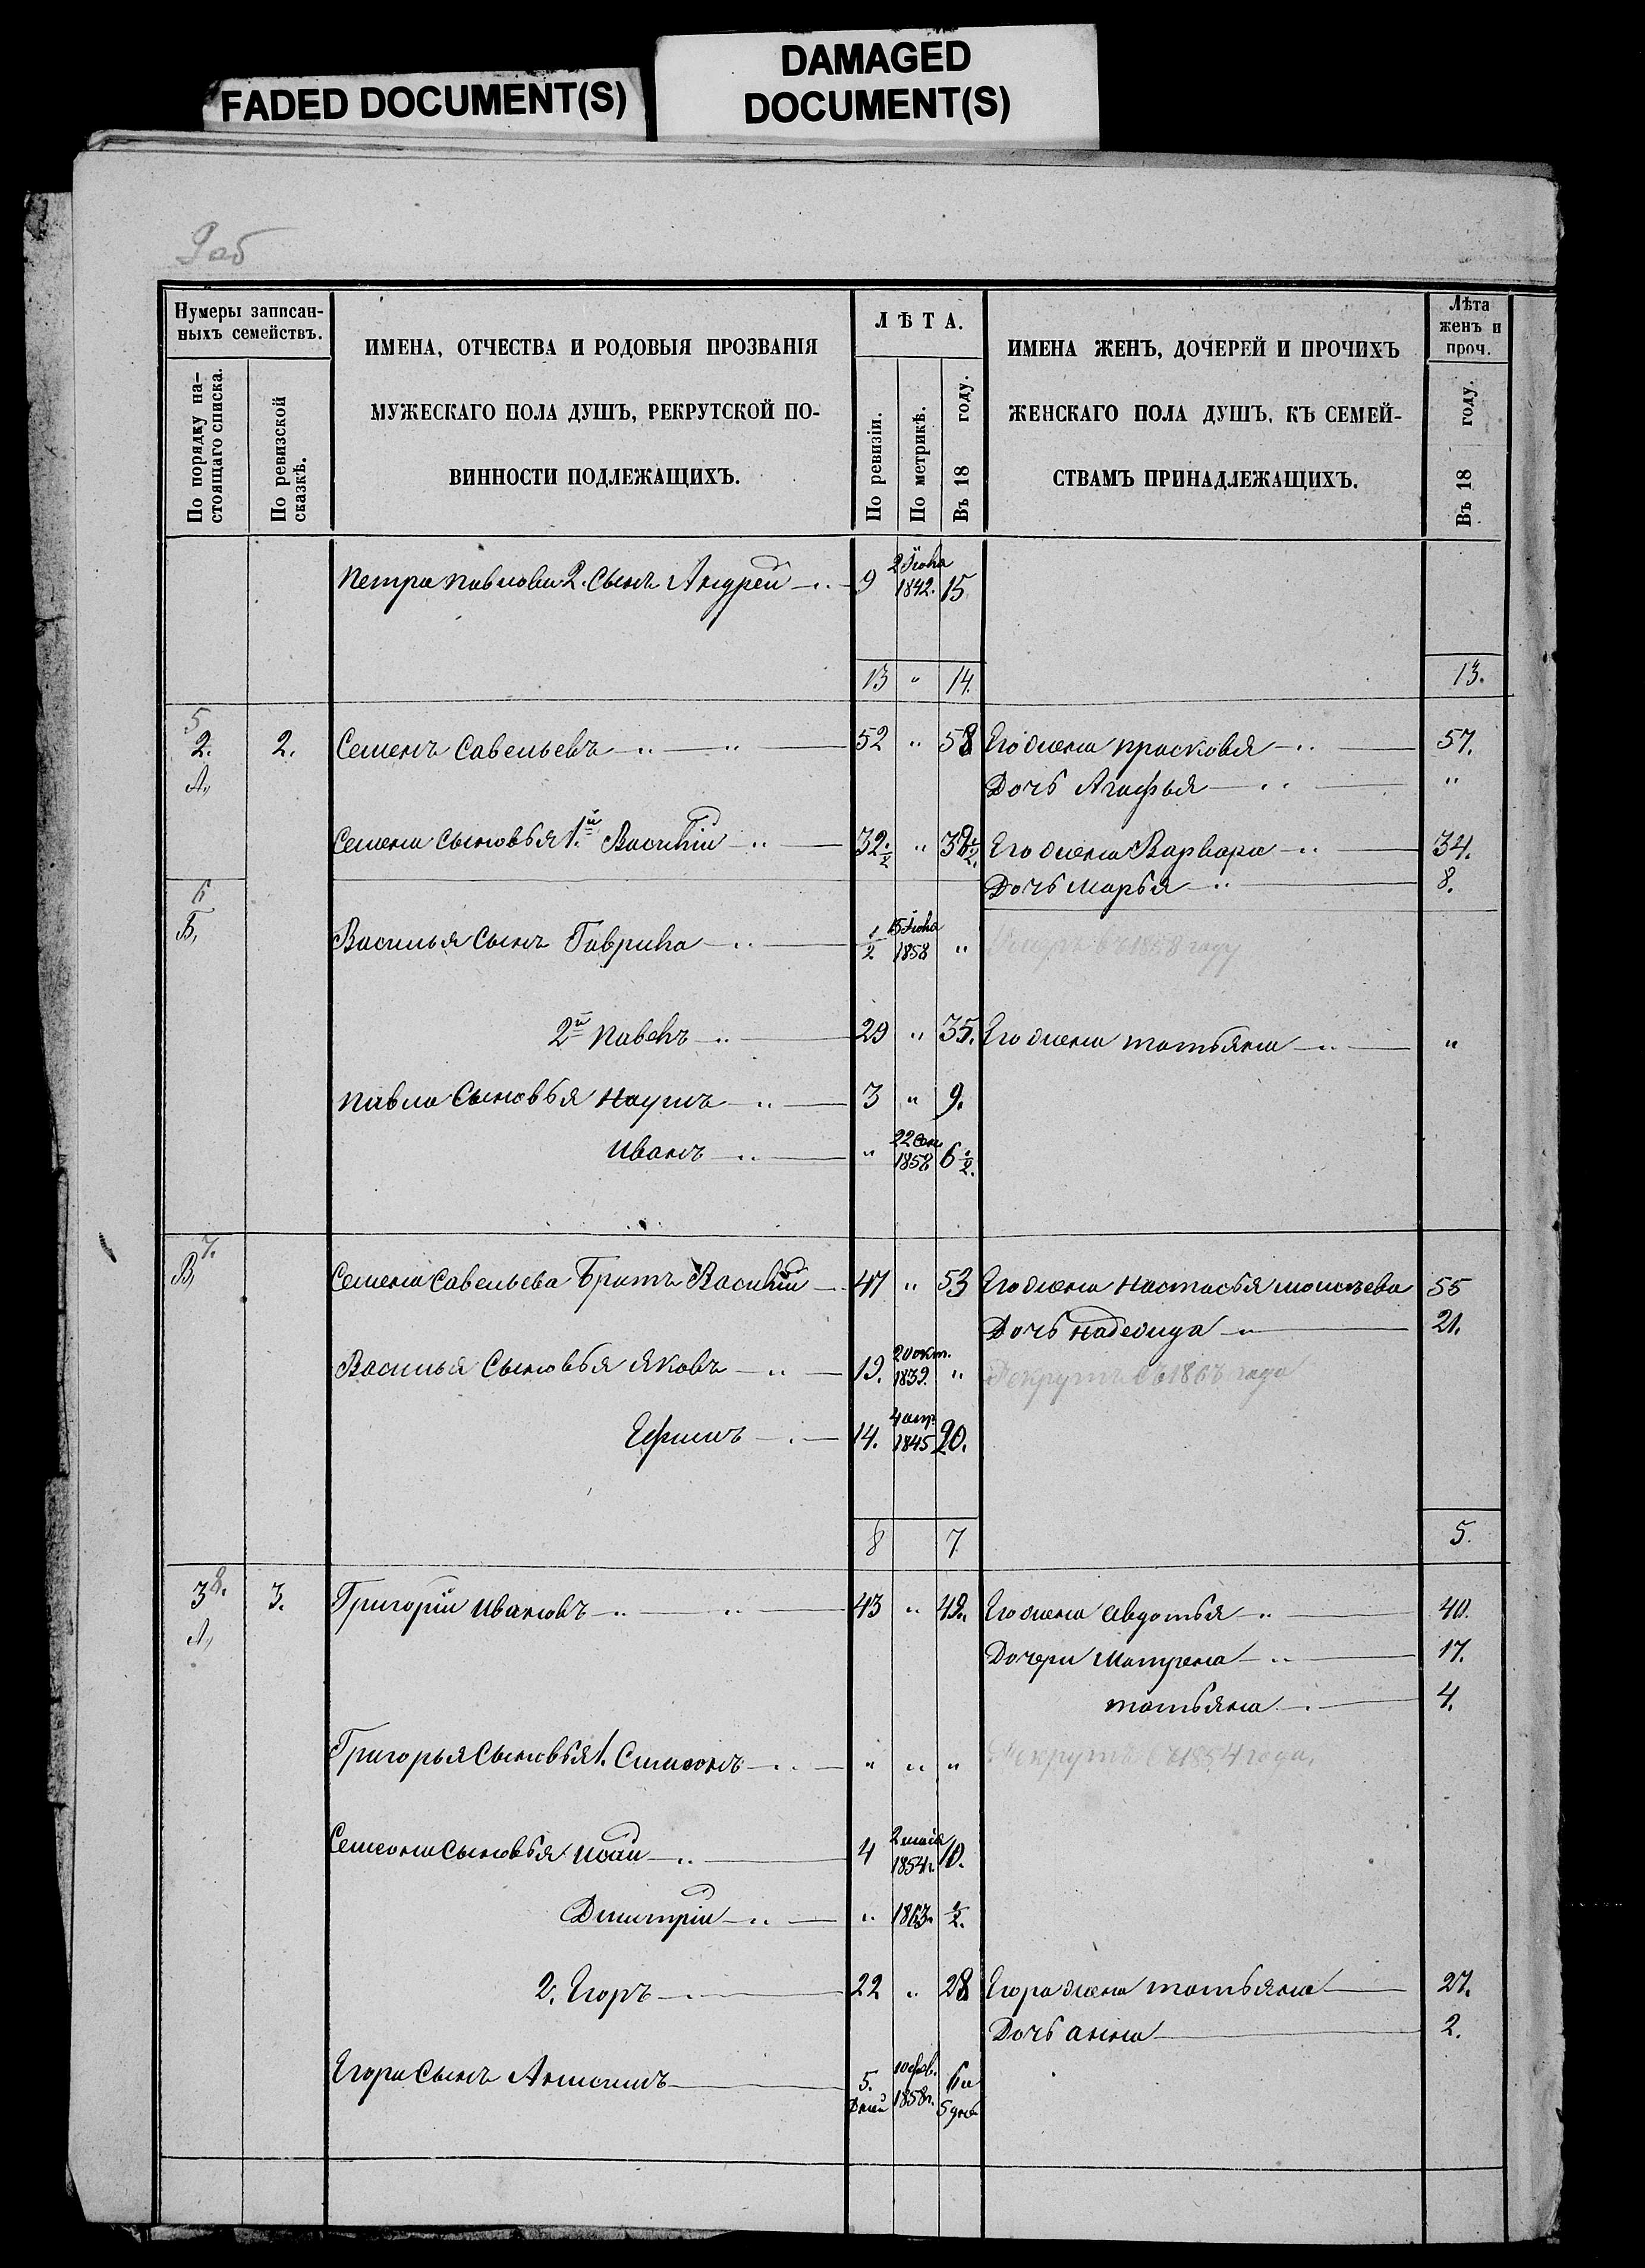 FADED DOCUMENT(S)
DAMAGED
DOCUMENT(S)
9 об
Нумеры записан-
ныхъ семействъ.
По порядку на-
стоящаго списка.
По ревизской
сказкѣ.
ИМЕНА, ОТЧЕСТВА И РОДОВЫЯ ПРОЗВАНІЯ
МУЖЕСКАГО ПОЛА ДУШЪ, РЕКРУТСКОЙ ПО-
ВИННОСТИ ПОДЛЕЖАЩИХЪ.
ЛѢТА.
По ревизіи.
По метрикѣ.
Въ 18 году.
ИМЕНА ЖЕНЪ, ДОЧЕРЕЙ И ПРОЧИХЪ
ЖЕНСКАГО ПОЛА ДУШЪ, КЪ СЕМЕЙ-
СТВАМЪ ПРИНАДЛЕЖАЩИХЪ.
Лѣта
женъ и
проч.
Въ 18 году.
Петра Павлова 2. Сынъ Андрей 9 1842. 15
13 " 14. 13.
5
2. 2. Семенъ Савельевъ 52 " 58 Его жена Прасковья 57.
А, Дочь Агафья "
Семена Сыновья 1й Василій 32 1/2 " 38 1/2. Его жена Варвара 34.
Дочь Марья 8.
6
Б, Василья Сынъ Гаврила 1/2 15 Іюня 1858 " Умеръ въ 1858 году
2й Павелъ 29 " 35. Его жена Татьяна "
Павла Сыновья Наумъ 3 " 9.
Иванъ " 22 1858 6 1/2.
7.
В, Семена Савельева Братъ Василій 47 " 53 Его жена Настасья Моисѣева 55
Дочь Надежда 21.
Василья Сыновья Яковъ 19. 20 окт. 1839. " Рекрутъ съ 1863 года
Ефимъ 14. 4 апр. 1845 20.
8 7 5.
8.
3 3. Григорій Ивановъ 43 " 49. Его жена Авдотья 40.
А, Дочери Матрена 17.
Татьяна 4.
Григорья Сыновья 1. Симеонъ " " " Рекрутъ съ 1854 года,
Семеона Сыновья Исай 4 2 мая 1854г. 10.
Дмитрій " 1863г. 1/2.
2. Егоръ 22 " 28 Егора жена Татьяна 27.
Дочь Анна 2.
Егора Сынъ 5. Дней 10 фев. 1858г. 6 и 5 дней